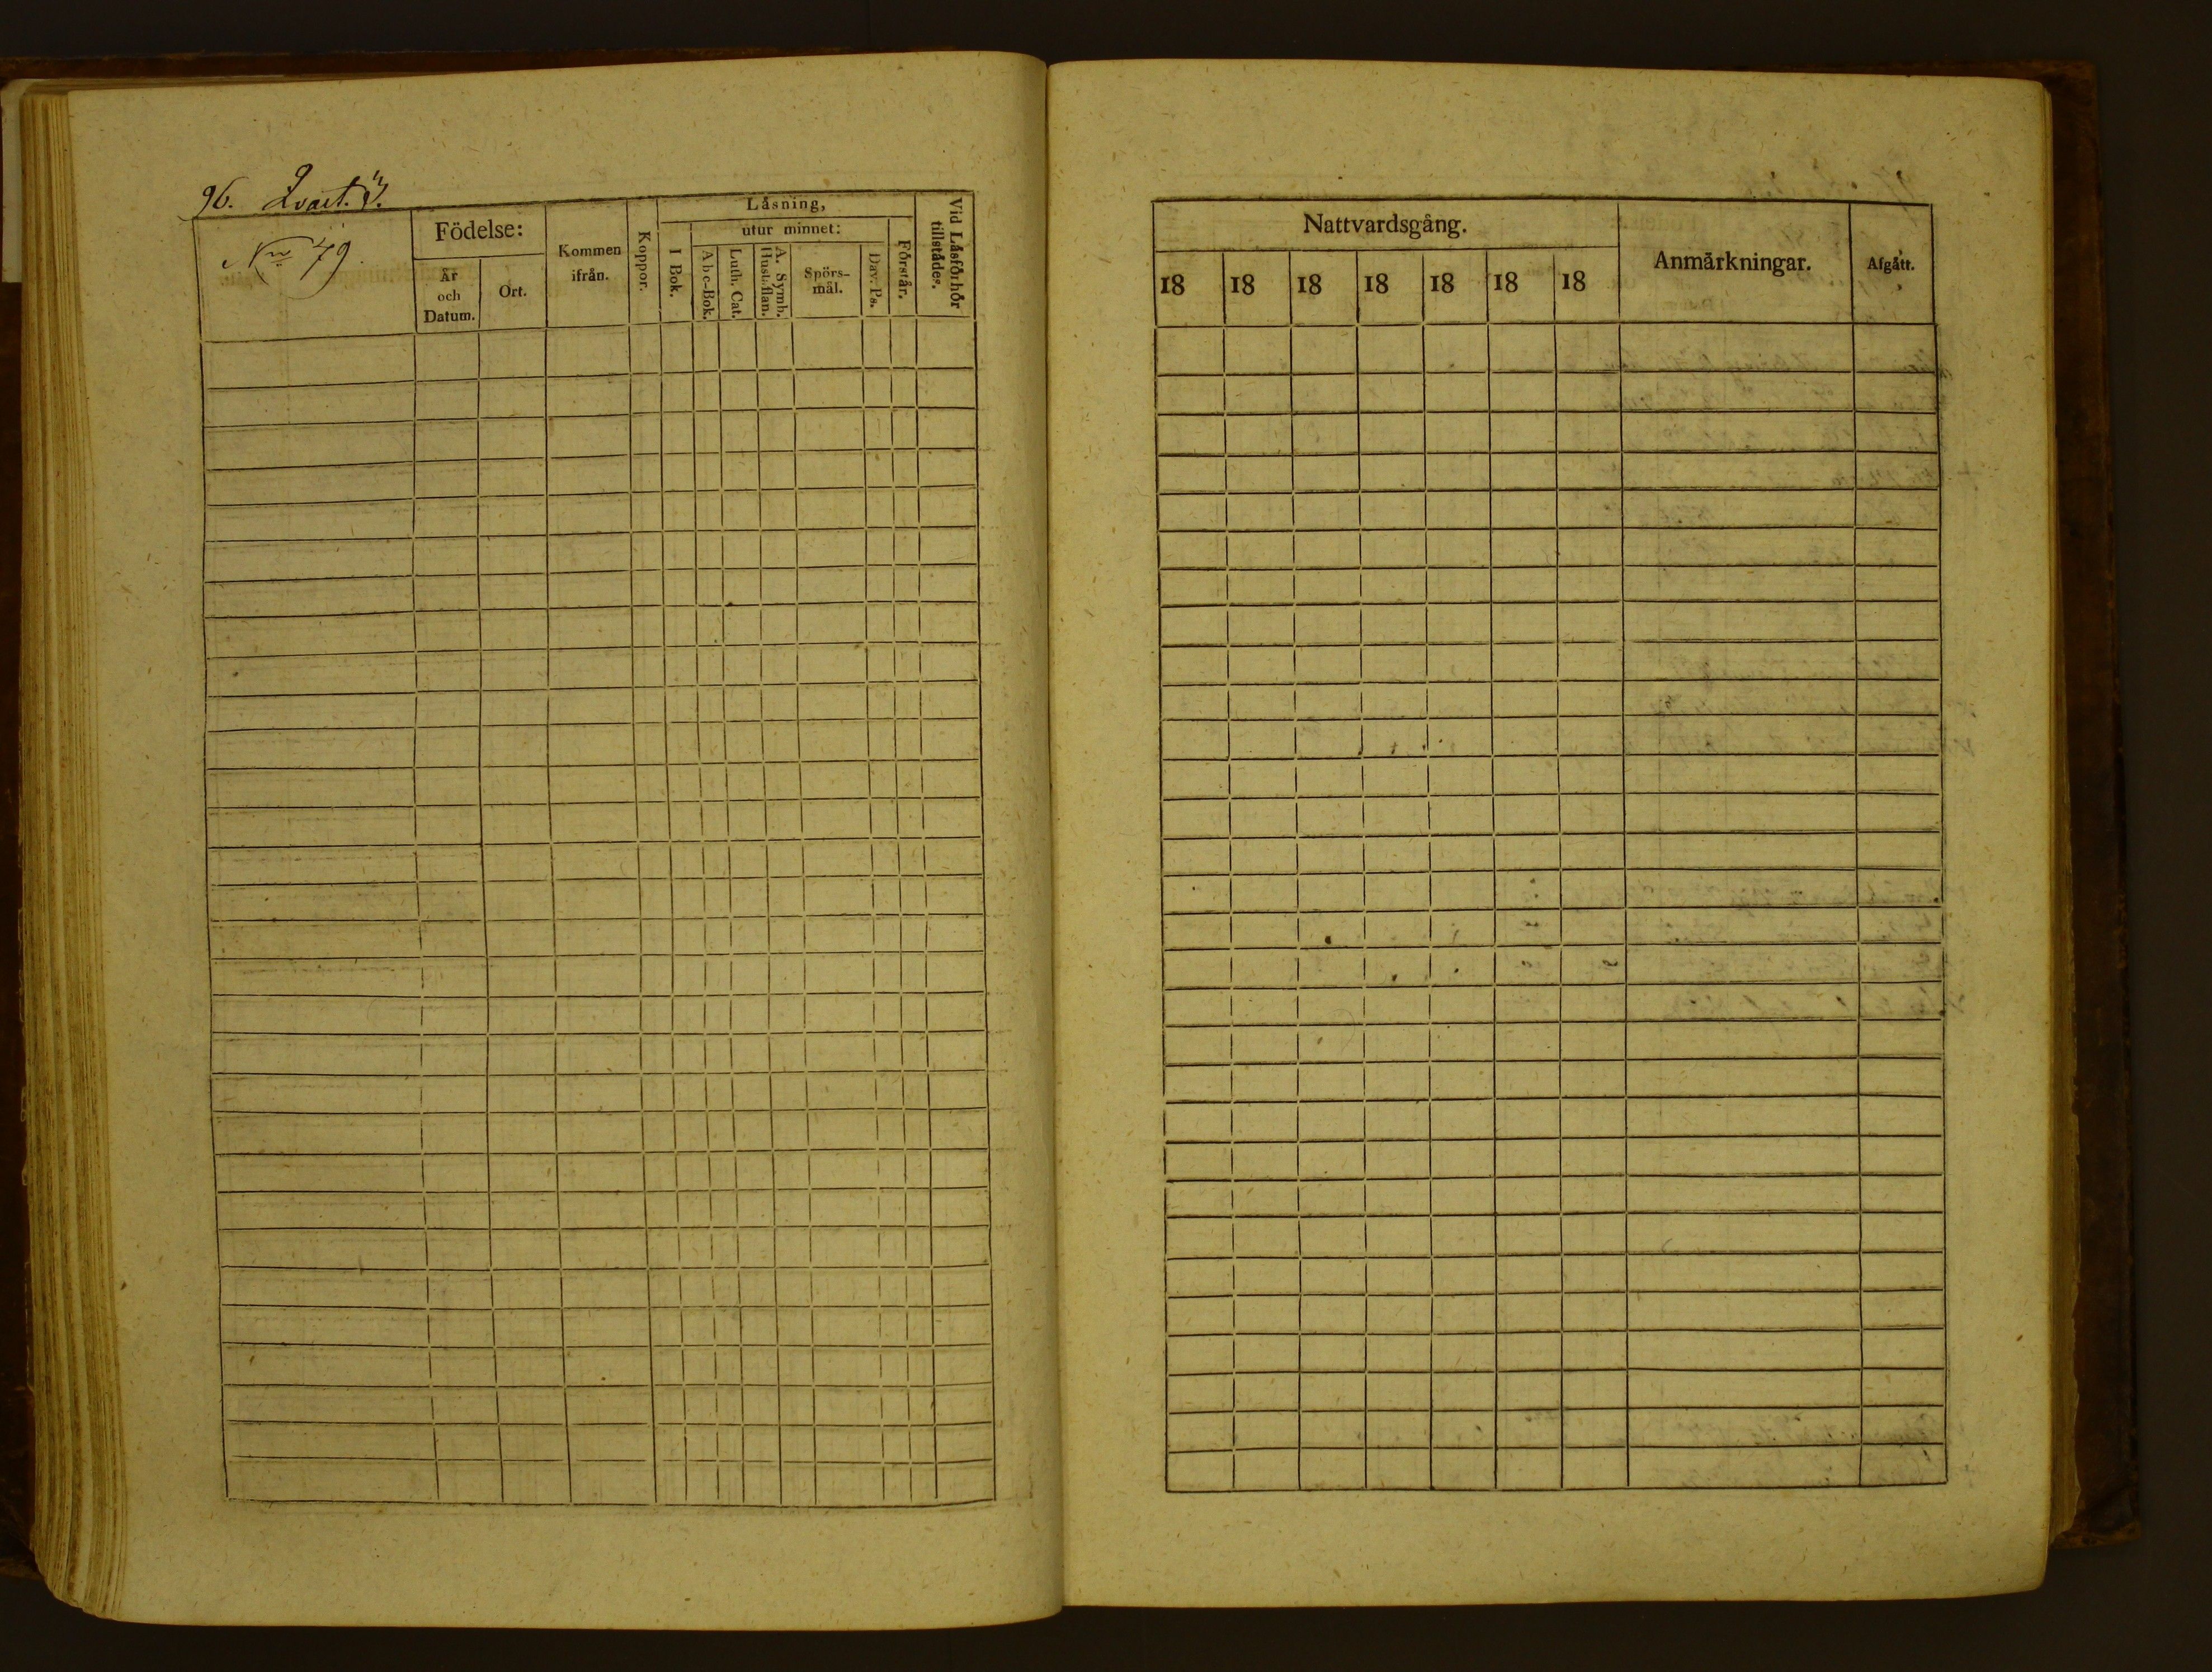 96. Qvart. 3.
No 79.
Födelse:
År
och
Datum.
Ort.
Kommen
ifrån.
Koppor.
Låsning,
I Bok.
utur minnet:
Abc-Bok.
Luth. Cat.
A. Symb.
Husl. flan.
Spörs-
mål.
Dav. Ps.
Förstår.
Vid Låsförhör
tillstådes.
Nattvardsgång.
18 18 18 18 18 18 18
Anmärkningar.
Afgått.